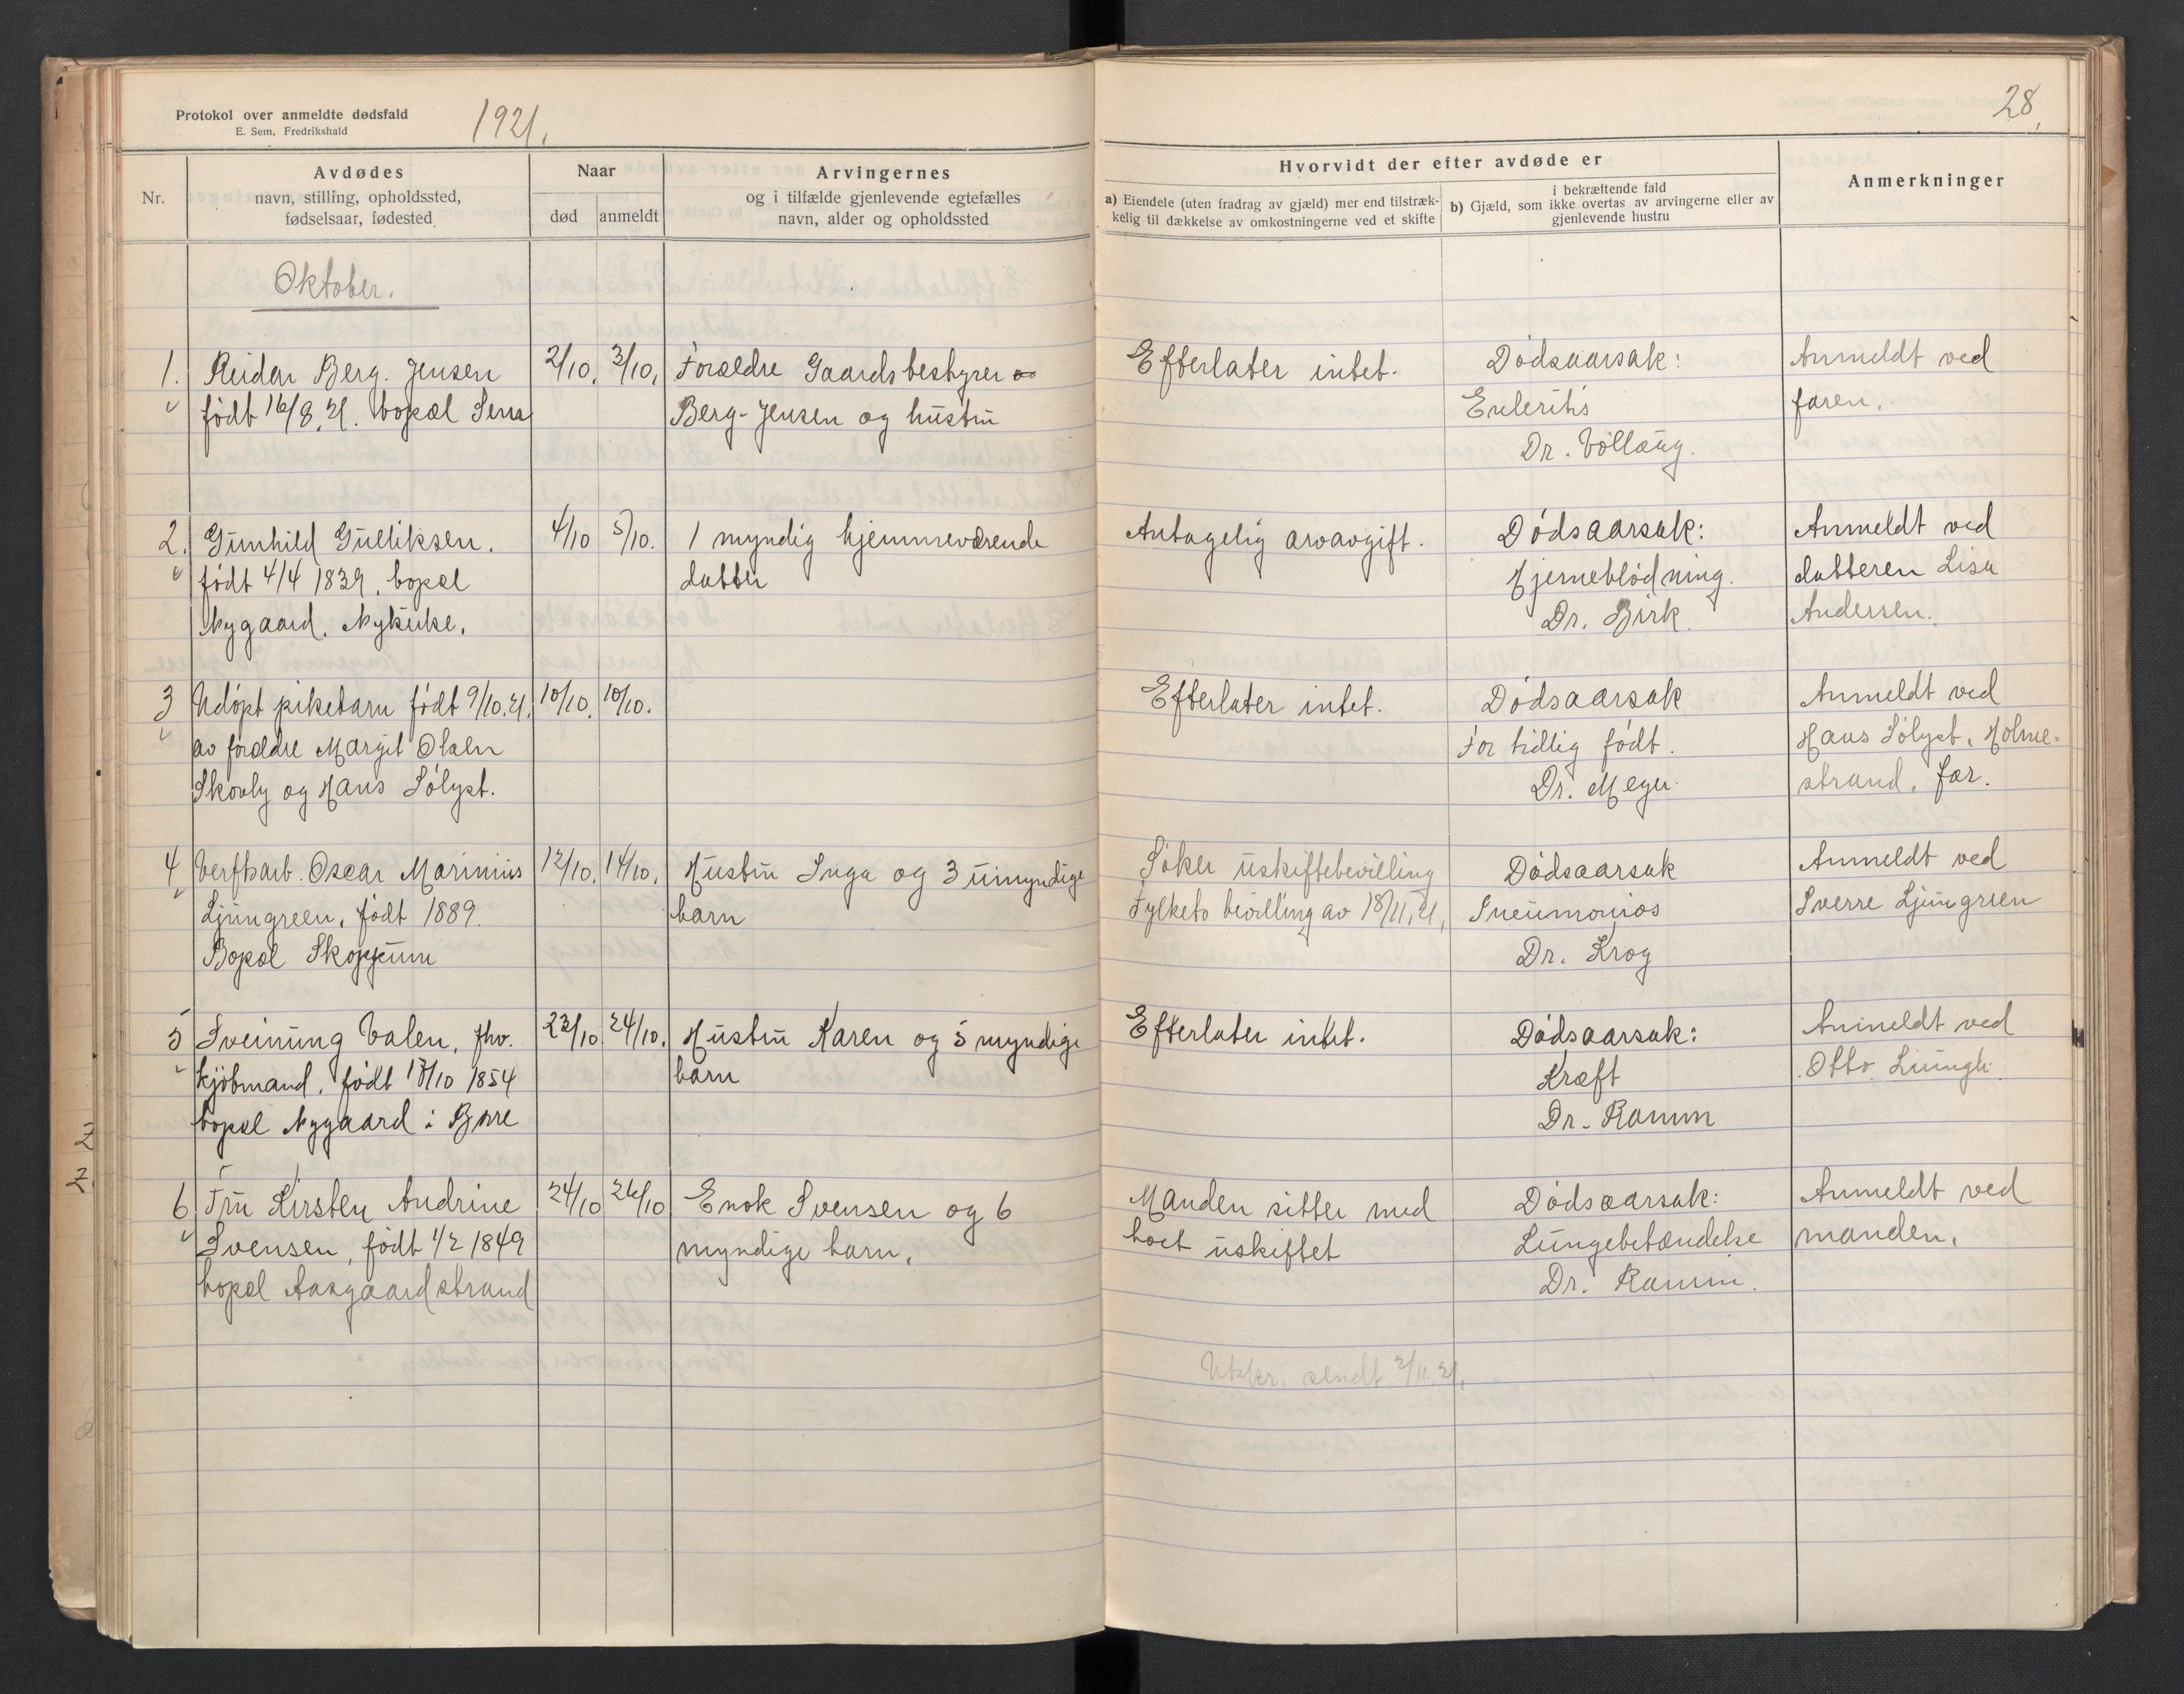 Protokol over anmeldte dødsfald
E. Sem, Fredrikshald
1921.
28.
Nr.
Avdødes
navn, stilling, opholdssted,
fødselsaar, fødested
Naar
død
anmeldt
Arvingernes
og i tilfælde gjenlevende egtefælles
navn, alder og opholdssted
Hvorvidt der efter avdøde er
a) Eiendele (uten fradrag av gjæld) mer end tilstræk-
kelig til dækkelse av omkostningerne ved et skifte
i bekræftende fald
b) Gjæld, som ikke overtas av arvingerne eller av
gjenlevende hustru
Anmerkninger
Oktober.
1. Reidar Berg-Jensen
født 16/8.21. bopæl Sem
2/10. 3/10.
Forældre Gaardsbestyrer
Berg-Jensen og hustru
Efterlater intet.
Dødsaarsak:
Enteritis
Dr. Vollaug.
Anmeldt ved
faren.
2. Gunhild Gulliksen.
født 4/4 1839. bopæl
Nygaard. Nykirke.
4/10 5/10.
1 myndig hjemmeværende
datter
Antagelig arvavgift.
Dødsaarsak:
Hjerneblødning.
Dr. Birk.
Anmeldt ved
datteren Lisa
Andersen.
3 Udøpt pikebarn født 9/10.21.
av forældre Margit Olsen
Skovly og Hans Sølyst.
10/10. 10/10.
Efterlater intet.
Dødsaarsak
For tidlig født.
Dr. Meyer.
Anmeldt ved
Hans Sølyst. Holme-
strand. far.
4 Verftsarb. Oscar Marinius
Ljungreen, født 1889.
Bopæl Skoppum
12/10. 14/10.
Hustru Inga og 3 umyndige
barn
Søker uskiftebevilling
Fylkets bevilling av 18/11.21.
Dødsaarsak
Pneumonios
Dr. Krog
Anmeldt ved
Sverre Ljungreen
5 Sveinung Valen, fhv.
kjøbmand. født 1854
bopæl Nygaard i Borre
23/10 24/10.
Hustru Karen og 5 myndige
barn
Efterlater intet.
Dødsaarsak:
Kræft
Dr. Ramm
Anmeldt ved
Otto
6 Fru Kirsten Andrine
Svensen, født 1/2 1849
bopæl Aasgaardstrand
24/10 26/10
Enok Svensen og 6
myndige barn.
Manden sitter med
boet uskiftet
Dødsaarsak:
Lungebetændelse
Dr. Ramm.
Anmeldt ved
manden.
Utskr. sendt 2/11.21.